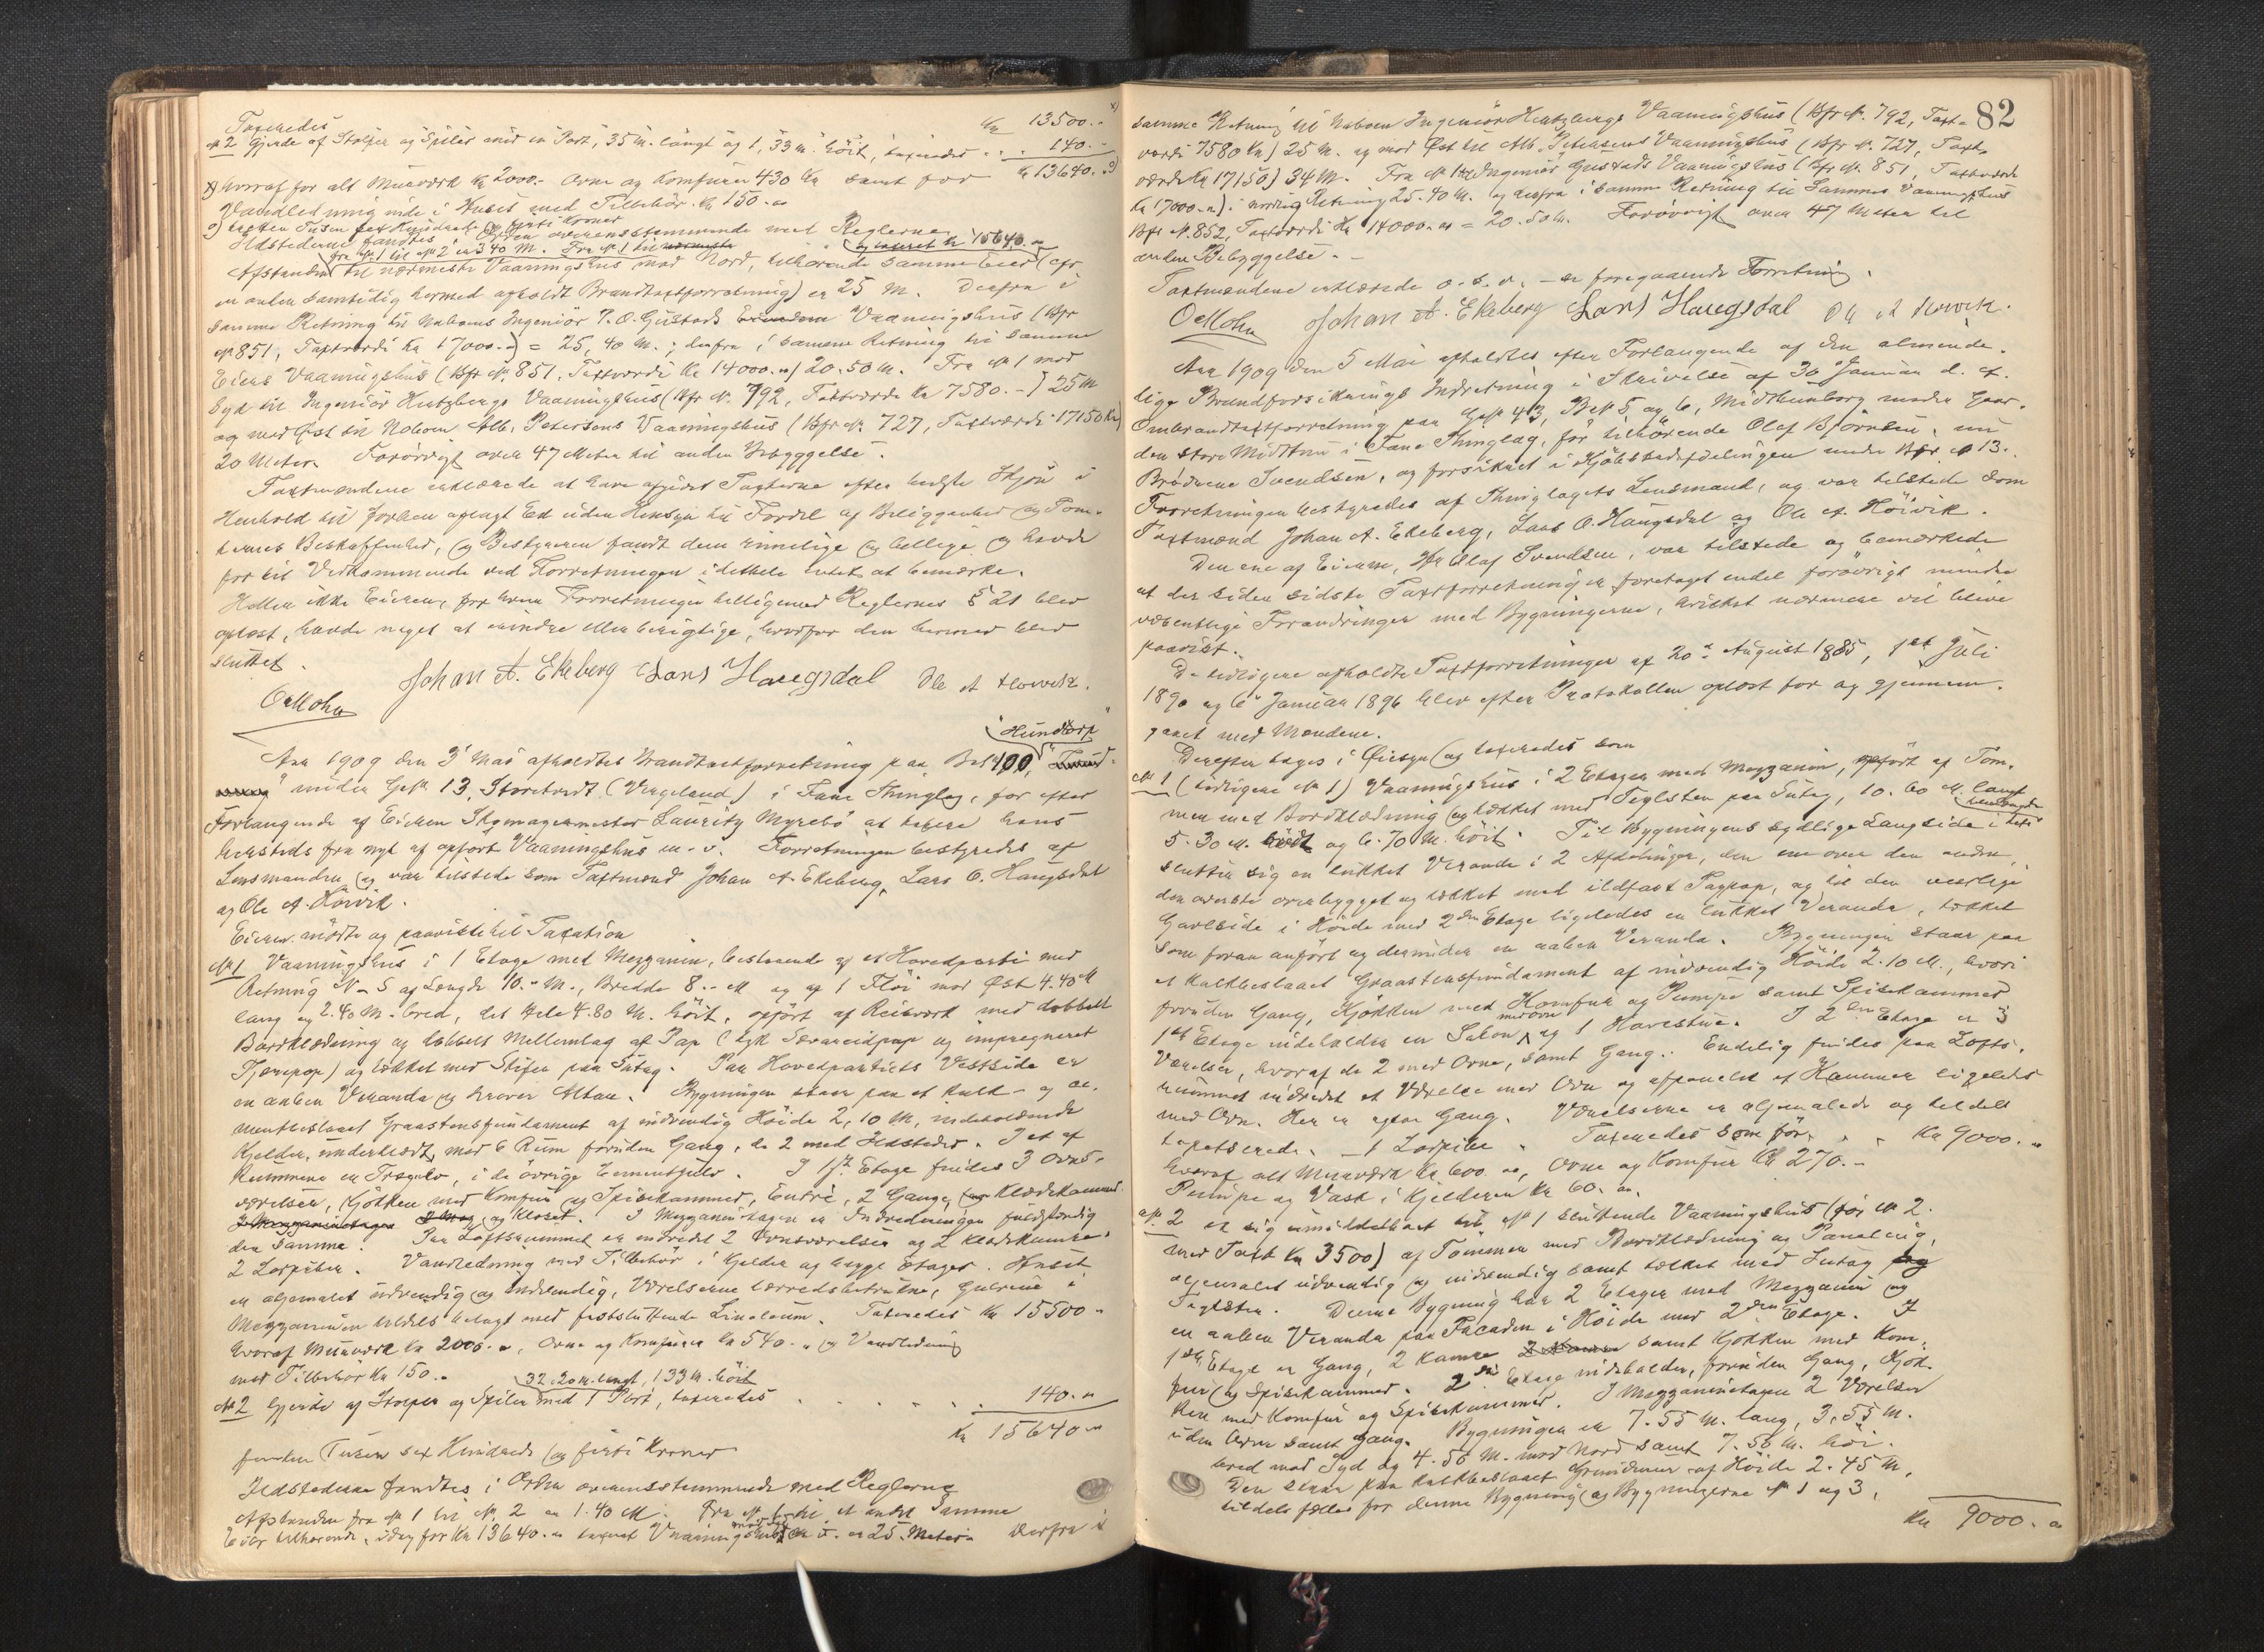 Taxeredes Kr 13500.- x)
№ 2 Gjerde af Stolper og Spiler med en Port, 35 m. langt og 1,33 m. höit, taxeredes . . . 140.-
Kr 13640.- o)
x) hvoraf for alt Murværk Kr 2000.- Ovne og Komfurer 430 Kr samt for
Vandledning inde i Huset med Tilbehör Kr 150.-
o) tretten Tusen sex Hundrede og förti Kroner
Ildstederne fandtes i Orden overensstemmende med Reglerne
fra № 1 til № 2 er 3.40 M. Fra № 1 til nærmeste og taxeret Kr 15640.-
Afstanden til nærmeste Vaaningshus mod Nord, tilhörende samme Eier (cfr
en anden samtidig hermed afholdt Brandtaxtforretning) er 25 M. Derfra i
samme Retning til Naboens Ingeniör P. O. Gjustads Vaaningshus (Bfr
№ 851, Taxtværdi Kr 17000.-) = 25,40 M.; derfra i samme Retning til samme
Eiers Vaaningshus (Bfr № 851, Taxtværdi Kr 14000.-) 20.50 M. Fra № 1 mod
Syd til Ingeniör Hertzbergs Vaaningshus (Bfr № 792, Taxtværdi Kr 7580.-) 25 M
og mod Öst til Naboen Alb. Petersens Vaaningshus (Bfr № 727, Taxtværdi 17150 Kr)
20 Meter. Forövrigt over 47 Meter til anden Bebyggelse.
Taxtmændene erklærede at have afgivet Taxterne efter bedste Skjön i
Henhold til forhen aflagt Ed uden Hensyn til Fordel af Beliggenhed og Tom-
ternes Beskaffenhed, og Bestyreren fandt dem rimelige og billige og havde
for sit Vedkommende ved Forretningen idethele intet at bemærke.
Heller ikke Eieren, for hvem Forretningen i Reglernes § 21 blev
oplæst, havde noget at erindre eller berigtige, hvorfor den hermed blev
sluttet.
Johan A. Ekeberg Lars Haugsdal Ole A Höivik.
O Mohn
"Hundtorp"
Aar 1909 den 3 Mai afholdtes Brandtaxtforretning paa Bsk 100,
under Gsk 13, Storetvedt (Vergeland) i Fane Thinglag, for efter
Forlangende af Eieren Skomagermester Lauritz Myrebö at taxere hans
herstads fra nyt af opfört Vaaningshus m. v. Forretningen bestyredes af
Lensmanden og var tilstede som Taxtmænd Johan A. Ekeberg, Lars O. Haugsdal
og Ole A. Höivik.
Eieren mödte og paaviste til Taxation
№ 1 Vaaningshus i 1 Etage med Mezzanin, bestaaende af et Hovedparti med
Retning N - S af Længde 10.- M., Bredde 8.- M og af 1 Flöi mod Öst 4.40 M
lang og 2.40 M. bred, det Hele 4.80 M. höit, opfört af Reisværk med dobbelt
Bordklædning og dobbelt Mellemlag af Pap (tyk og impregneret
Tjærepap) og tækket med Skifer paa Sutag. Paa Hovedpartiets Vestside er
en aaben Veranda og herover Altan. Bygningen staar paa et kalk- og ce-
mentbeslaaet Graastensfundament af indvendig Höide 2,10 M, indeholdende
Kjelder, med 6 Rum foruden Gang, de 2 med Ildsteder. I et af
Rummene er Trægulv, i de övrige Cementgulv. I 1ste Etage findes 3 Ovns-
værelser, Kjökken med Komfur og Spisekammer, Entré, 2 Gange, Klædekammer
og Kloset. I Mezzaninetagen er Indredningen fuldstændig
den samme. Paa Loftsrummet er indredet 2 Ovnsværelser og 2 Klædekamre.
2 Lorpiber. Vandledning med Tilbehör i Kjelder og begge Etager. Huset
er oljemalet udvendig og indvendig, Værelserne lærredsbetrukne, Gulvene i
Mezzaninen tildels belagt med fastsluttende Linoleum. Taxeredes Kr 15500.-
hvoraf Murværk Kr 2000.-, Ovne og Komfurer Kr 540.- og Vandledning
med Tilbehör Kr 150.-
32.20 m. langt, 1,33 m. höit
№ 2 Gjerde af Stolper og Spiler med 1 Port, taxeredes . . . . . . 140.-
Kr 15640.-
femten Tusen sex Hundrede og förti Kroner
Ildstederne fandtes i Orden overensstemmende med Reglerne
Afstanden fra № 1 til № 2 er 1.40 M. Fra № 1 til et andet Samme
Eier tilhörende, idag for Kr 13640.- taxeret Vaaningshus er 25 Meter. Derfra i
82
samme Retning til Naboen Ingeniör Hertzbergs Vaaningshus (Bfr № 792, Taxt-
værdi 7580 Kr) 25 M. og mod Öst til Alb. Petersens Vaaningshus (Bfr № 727, Taxt-
værdi Kr 17150) 34 M. Fra № 1 til Ingeniör Gjustads Vaaningshus (Bfr № 851, Taxtværdi
Kr 17000.-) i nordlig Retning 25.40 M. og derfra i samme Retning til Sammes Vaaningshus
Bfr № 852, Taxtværdi Kr 14000.- = 20.50 M. Forövrigt over 47 Meter til
anden Bebyggelse.-
Taxtmændene erklærede o. s. v. - se foregaaende Forretning.
O Mohn Johan A. Ekeberg Lars Haugsdal Ole A Höivik.
Aar 1909 den 5 Mai afholdtes efter Forlangende af den alminde-
lige Brandforsikrings Indretning i Skrivelse af 30 Januar d. A.
Ombrandtaxtforretning paa Gsk 43, Bsk 5 og 6, Midttunborg under Gaar-
den store Midttun i Fane Thinglag, för tilhörende Olaf Björnsen, nu
Brödrene Svendsen, og forsikret i Kjöbstadafdelingen under Bfr № 13.
Forretningen bestyredes af Thinglagets Lensmand, og var tilstede som
Taxtmænd Johan A. Ekeberg, Lars O. Haugsdal og Ole A. Höivik.
Den ene af Eierne, Hr Olaf Svendsen, var tilstede og bemærkede
at der siden sidste Taxtforretning er foretaget endel forövrigt mindre
væsentlige Forandringer med Bygningerne, hvilket nærmere vil blive
paavist.
De tidligere afholdte Taxtforretninger af 20de August 1885, 1ste Juli
1890 og 6 Januar 1896 blev efter Protokollen oplæst for og gjennem-
gaaet med Mændene.
Derefter toges i Öiesyn og taxeredes som
№ 1 (tidligere № 1) Vaaningshus i 2 Etager med Mezzanin, opfört af Töm-
mer med Bordklædning og tækket med Teglsten paa Sutag, 10.60 M. langt
5.30 M. og 6.70 M. höit. Til Bygningens sydlige Langside
slutter sig en lukket Veranda i 2 Afdelinger, den ene over den anden,
den överste overbygget og tækket med ildfast Tagpap, og til den vestlige
Gavlside i Höide med 2den Etage ligeledes en lukket Veranda, tækket
som foran anfört og derunder en aaben Veranda. Bygningen staar paa
et kalkbeslaaet Graastensfundament af indvendig Höide 2.10 M., hvori
foruden Gang, Kjökken med Komfur og Pumpe samt Spisekammer
1ste Etage indeholder en Salon med Ovn og 1 Havestue. I 2den Etage er 3
Værelser, hvoraf de 2 med Ovne, samt Gang. Endelig findes paa Lofts-
rummet indredet et Værelse med Ovn og afpanelet et Kammer ligeledes
med Ovn. Her er ogsaa Gang. Værelserne er oljemalede og tildels
tapetserede. - 1 Lorpibe. Taxeredes som för . . . Kr 9000.-
hvoraf alt Murværk Kr 600.-, Ovne og Komfur Kr 270.-
Pumpe og Vask i Kjelderen Kr 60.-
№ 2 et sig umiddelbart til № 1 sluttende Vaaningshus (för № 2
med Taxt Kr 3500) af Tömmer med Bordklædning og Paneling,
oljemalet udvendig og indvendig samt tækket med Sutag
Teglsten. Denne Bygning har 2 Etager med Mezzanin og
en aaben Veranda paa Facaden i Höide med 2den Etage. I
1ste Etage er Gang, 2 Kamre samt Kjökken med Kom-
fur og Spisekammer. 2den Etage indeholder, foruden Gang, Kjök-
ken med Komfur og Spisekammer. I Mezzaninetagen 2 Værelser
uden Ovne samt Gang. Bygningen er 7.55 M. lang, 3.55 M.
bred mod Syd og 4.56 M. mod Nord samt 7.56 M. höi.
Den staar paa kalkbeslaaet Grundmur af Höide 2.45 M.
tildels fælles for denne Bygning og Bygningerne № 1 og 3.
Kr 9000.-